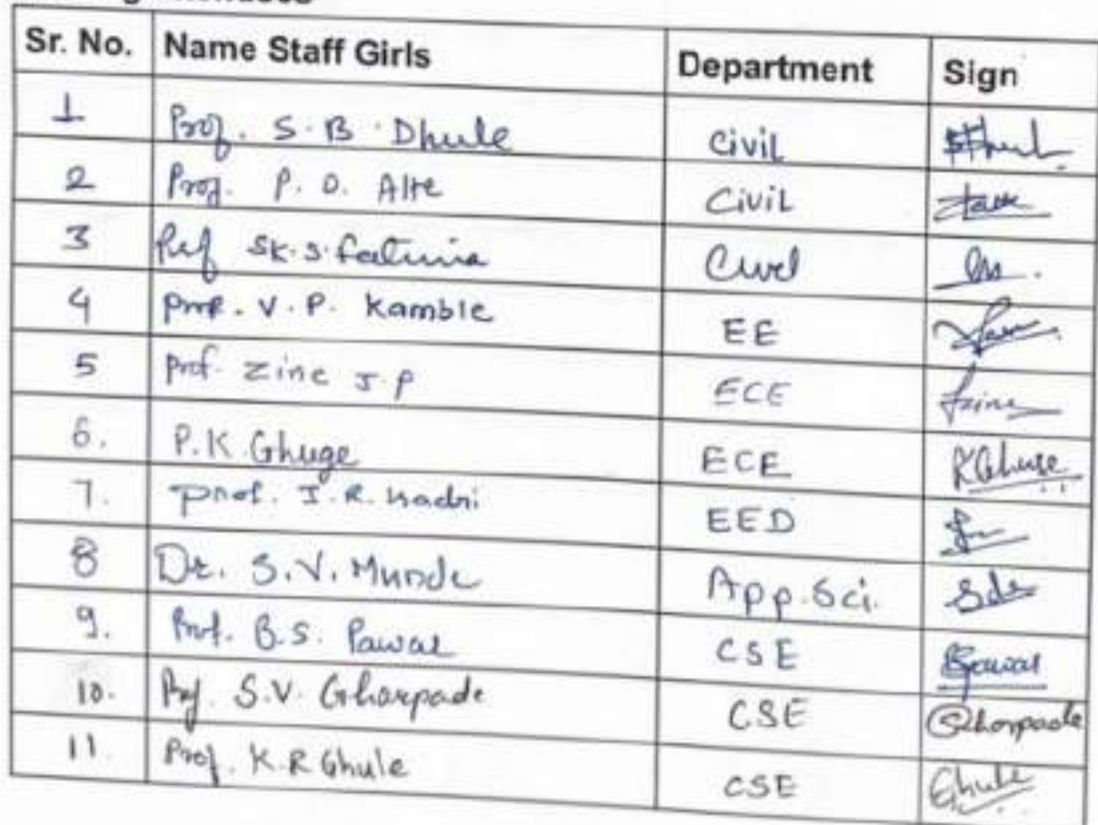 Sr. No. Name Staff Girls Department Sign
1 Prof. S. B. Dhule Civil
2 Prof. P. D. Alte Civil
3 Prof SK. S. Fatima Civil
4 Prof. V. P. Kamble EE
5 Prof. Zine J. P ECE Jzine
6. P. K. Ghuge ECE PKGhuge
7. Prof. I. R. Kadri EED
8 Dr. S. V. Munde App. Sci.
9. Prof. B. S. Pawar CSE BPawar
10. Prof. S. V. Ghorpade CSE Ghorpade
11. Prof. K. R Ghule CSE Ghule